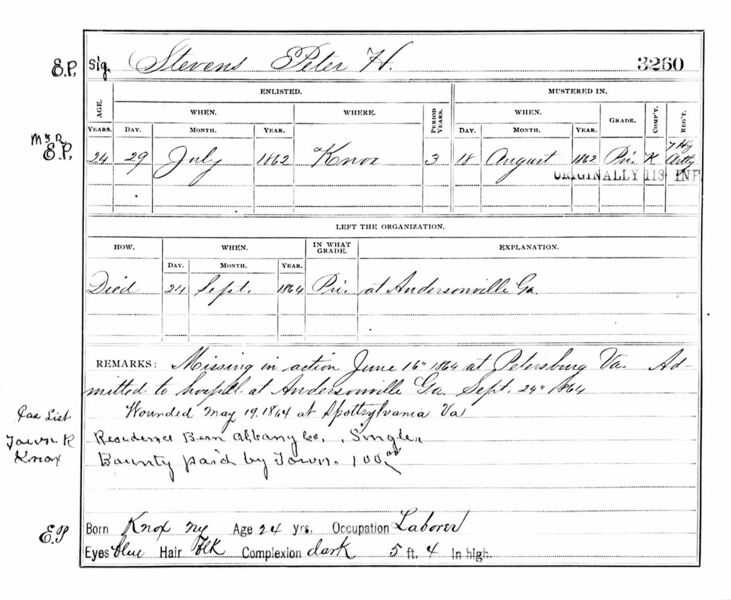 E.P. Sig. Stevens Peter H. 3260
ENLISTED. MUSTERED IN.
AGE. WHEN. WHERE. PERIOD YEARS. WHEN. GRADE. COMP'Y. REG'T.
YEARS. DAY. MONTH. YEAR. DAY. MONTH. YEAR.
M & R
E.P. 24 29 July 1862 Knox 3 18 August 1862 Pri. K 7 Hvy Arty
ORIGINALLY 113 INF
LEFT THE ORGANIZATION.
HOW. WHEN. IN WHAT GRADE. EXPLANATION.
DAY. MONTH. YEAR.
Died 24 Sept. 1864 Pri. at Andersonville Ga.
REMARKS: Missing in action June 16" 1864 at Petersburg Va. Ad-
mitted to hospitl. at Andersonville Ga. Sept. 24" 1864
Cas List Wounded May 19, 1864 at Spottsylvania Va
Town R Residence Bern Albany Co. , Single
Knox Bounty paid by Town. 100.00
E.P. Born Knox NY Age 24 yrs, Occupation Laborer
Eyes blue Hair Blk Complexion dark 5 ft. 4 in high.